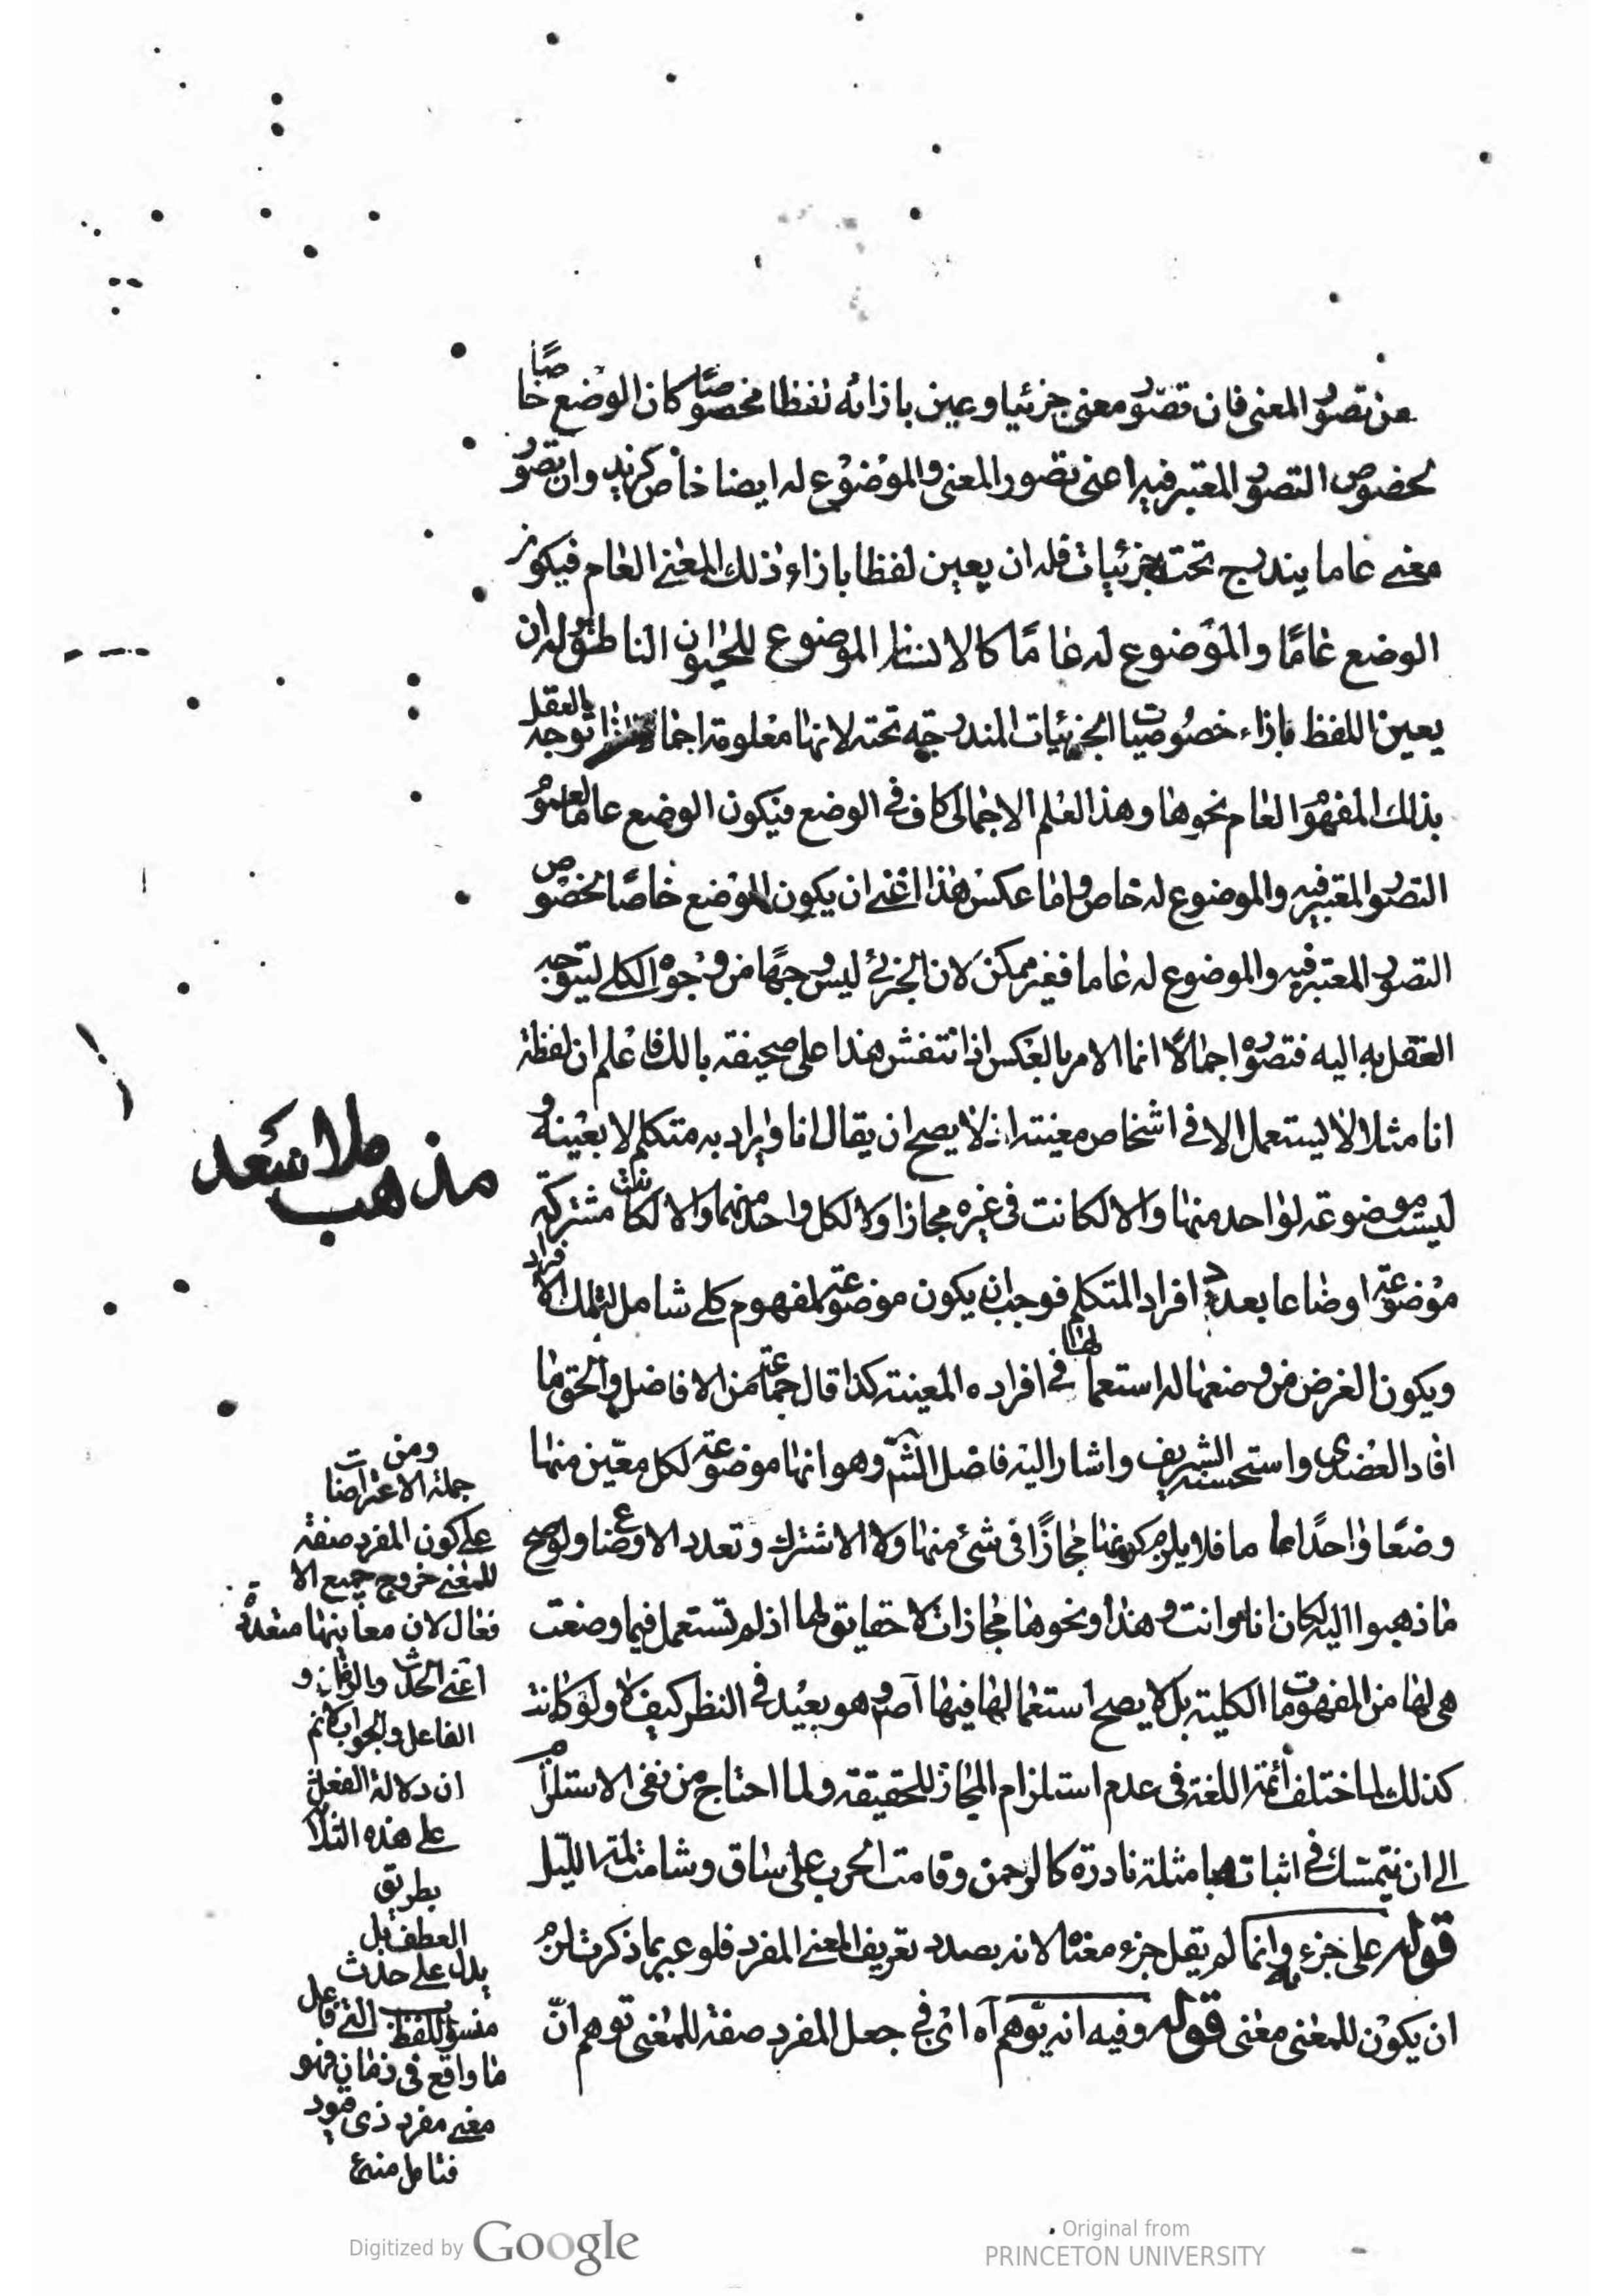 من تصور المعنى فان تصور معنى جزئيا وعين بازائه لفظا مخصوصًا كان الوضع خاصًا
لخصوص التصور المعتبر فيه اعنى تصور المعنى والموضوع له ايضا خاص كزيد وان تصور
معنى عاما يندرج تحته جزئيات فله ان يعين لفظا بازاء ذلك المعنى العام فيكون
الوضع عامًا والموضوع له عامًا كالانسان الموضوع للحيوان الناطق وله ان
يعين اللفظ بازاء خصوصيات الجزئيات المندرجة تحته لانها معلومة اجمالا اذا توجه العقل
بذلك المفهوم العام نحوها وهذا العلم الاجمالى كاف فى الوضع فيكون الوضع عاما لعموم
التصور المعتبر فيه والموضوع له خاص واما عكس هذا اعنى ان يكون الوضع خاصًا لخصوص
التصور المعتبر فيه والموضوع له عاما فغير ممكن لان الجزئى ليس وجهًا من وجوه الكلى ليتوجه
العقل به اليه فتصوره اجمالًا انما الامر بالعكس اذا انتقش هذا على صحيفة بالك فاعلم ان لفظة
انا مثلا لا يستعمل الا فى اشخاص معينة اذ لا يصح ان يقال انا ويراد به متكلم لا بعينه و
ليست موضوعة لواحد منها والا لكانت فى غيره مجازا ولا لكل واحد منهما والا لكانت مشتركة
موضوعة اوضاعا بعدد افراد المتكلم فوجب ان يكون موضوعة لمفهوم كلى شامل لتلك الافراد
ويكون الغرض من وضعها له استعمالها فى افراده المعينة كذا قال جماعة من الافاضل والحق ما
افاد العضدى واستحسنه الشريف واشار اليه فاضل الشم وهو انها موضوعة لكل معين منها
وضعًا واحدًا عاما فلا يلزم كونها مجازًا فى شئ منها ولا الاشتراك وتعدد الاوضاع ولو صح
ما ذهبوا اليه لكان انا وانت وهذا ونحوها مجازات لا حقايق لها اذ لم تستعمل فيما وضعت
هى لها من المفهومات الكلية بل لا يصح استعمالها فيها اصم وهو بعيد فى النظر كيف لا ولو كانت
كذلك لما اختلف أئمة اللغة فى عدم استلزام المجاز للحقيقة ولما احتاج من نفى الاستلزام
الى ان يتمسك فى اثباته بامثلة نادرة كالرحمن وقامت الحرب على ساق وشابت لمة الليل
قوله على جزءه وانما لم يقل جزء معناه لانه بصدد تعريف المعنى المفرد فلو عبر بما ذكرت لزم
ان يكون للمعنى معنى قوله وفيه انه يوهم آه اى فى جعل المفرد صفة للمعنى توهم انّ
مذهب ملا سعد
ومن
جملة الاعتراضات
على كون المفرد صفة
للمعنى خروج جميع الا
فعال لان معانيها متعددة
اعنى الحدث والزمان و
الفاعل والجواب انم
ان دلالة الفعل
على هذه الثلا
بطريق
العطف بل
يدل على حدث
منسوب للفظ الى فاعل
ما واقع فى زمان فهو
معنى مفرد ذى قيود
فتامل منه
Digitized by Google
Original from
PRINCETON UNIVERSITY